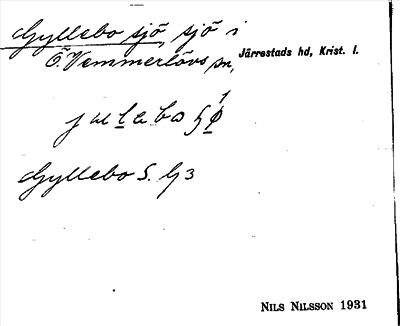 Gyllebo sjö, sjö i
Ö Vemmerlövs sn, Järrestads hd, Krist. l.
Gyllebo S. G3
NILS NILSSON 1931